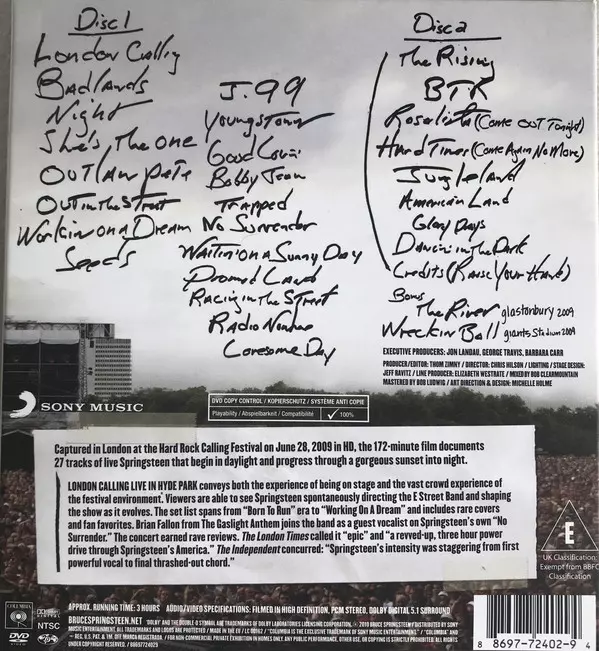 Disc 1
London Calling
Badlands
Night
She's The One
Outlaw Pete
Out in the Street
Workin on a Dream
Seeds
J. 99
Youngstown
Good Lovin'
Bobby Jean
Trapped
No Surrender
Waitin' on a Sunny Day
Promised Land
Racing in the Street
Radio Nowhere
Lonesome Day
Disc 2
The Rising
BTR
Rosalita (Come OUT Tonight)
Hard Times (Come Again No More)
Jungleland
American Land
Glory Days
Dancin' in the Dark
Credits (Raise Your Hand)
Bonus
The River glastonbury 2009
Wreckin Ball giants Stadium 2009
EXECUTIVE PRODUCERS: JON LANDAU, GEORGE TRAVIS, BARBARA CARR
PRODUCER/EDITOR: THOM ZIMNY / DIRECTOR: CHRIS HILSON / LIGHTING/STAGE DESIGN:
JEFF RAVITZ / LINE PRODUCER: ELIZABETH WESTRATE / MIXED BY BOB CLEARMOUNTAIN
MASTERED BY BOB LUDWIG / ART DIRECTION & DESIGN: MICHELLE HOLME
SONY MUSIC
DVD COPY CONTROL / KOPIERSCHUTZ / SYSTÈME ANTI COPIE
Playability / Abspielbarkeit / Compatibilité ✓ 100%
Captured in London at the Hard Rock Calling Festival on June 28, 2009 in HD, the 172-minute film documents
27 tracks of live Springsteen that begin in daylight and progress through a gorgeous sunset into night.
LONDON CALLING LIVE IN HYDE PARK conveys both the experience of being on stage and the vast crowd experience of
the festival environment. Viewers are able to see Springsteen spontaneously directing the E Street Band and shaping
the show as it evolves. The set list spans from "Born To Run" era to "Working On A Dream" and includes rare covers
and fan favorites. Brian Fallon from The Gaslight Anthem joins the band as a guest vocalist on Springsteen's own "No
Surrender." The concert earned rave reviews. The London Times called it "epic" and "a revved-up, three hour power
drive through Springsteen's America." The Independent concurred: "Springsteen's intensity was staggering from first
powerful vocal to final thrashed-out chord."
E
UK Classification:
Exempt from BBFC
Classification
COLUMBIA
DVD
VIDEO
DOLBY
DIGITAL
NTSC
APPROX. RUNNING TIME: 3 HOURS AUDIO/VIDEO SPECIFICATIONS: FILMED IN HIGH DEFINITION, PCM STEREO, DOLBY DIGITAL 5.1 SURROUND
BRUCESPRINGSTEEN.NET "DOLBY" AND THE DOUBLE-D SYMBOL ARE TRADEMARKS OF DOLBY LABORATORIES LICENSING CORPORATION. © 2010 BRUCE SPRINGSTEEN/DISTRIBUTED BY SONY
MUSIC ENTERTAINMENT. ALL TRADEMARKS AND LOGOS ARE PROTECTED / MADE IN THE EU / LC 00162 / "COLUMBIA" IS THE EXCLUSIVE TRADEMARK OF SONY MUSIC ENTERTAINMENT. "COLUMBIA" AND
REG. U.S. PAT. & TM. OFF. MARCA REGISTRADA. / FOR NON-COMMERCIAL, PRIVATE EXHIBITION IN HOMES ONLY. ANY PUBLIC PERFORMANCE, OTHER USE, OR COPYING IS STRICTLY PROHIBITED. ALL RIGHTS
UNDER COPYRIGHT RESERVED. / 88697724029
8 86977-2402-9 4